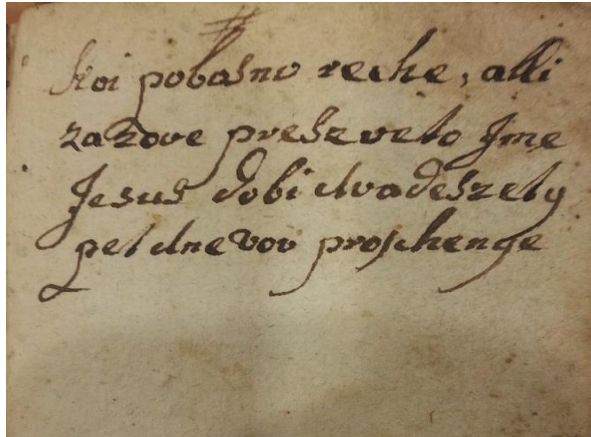 Koi pobosno reche, alli
zazove preszveto Jme
Jesus dobi dvadeszety
pet dnevov proschenye